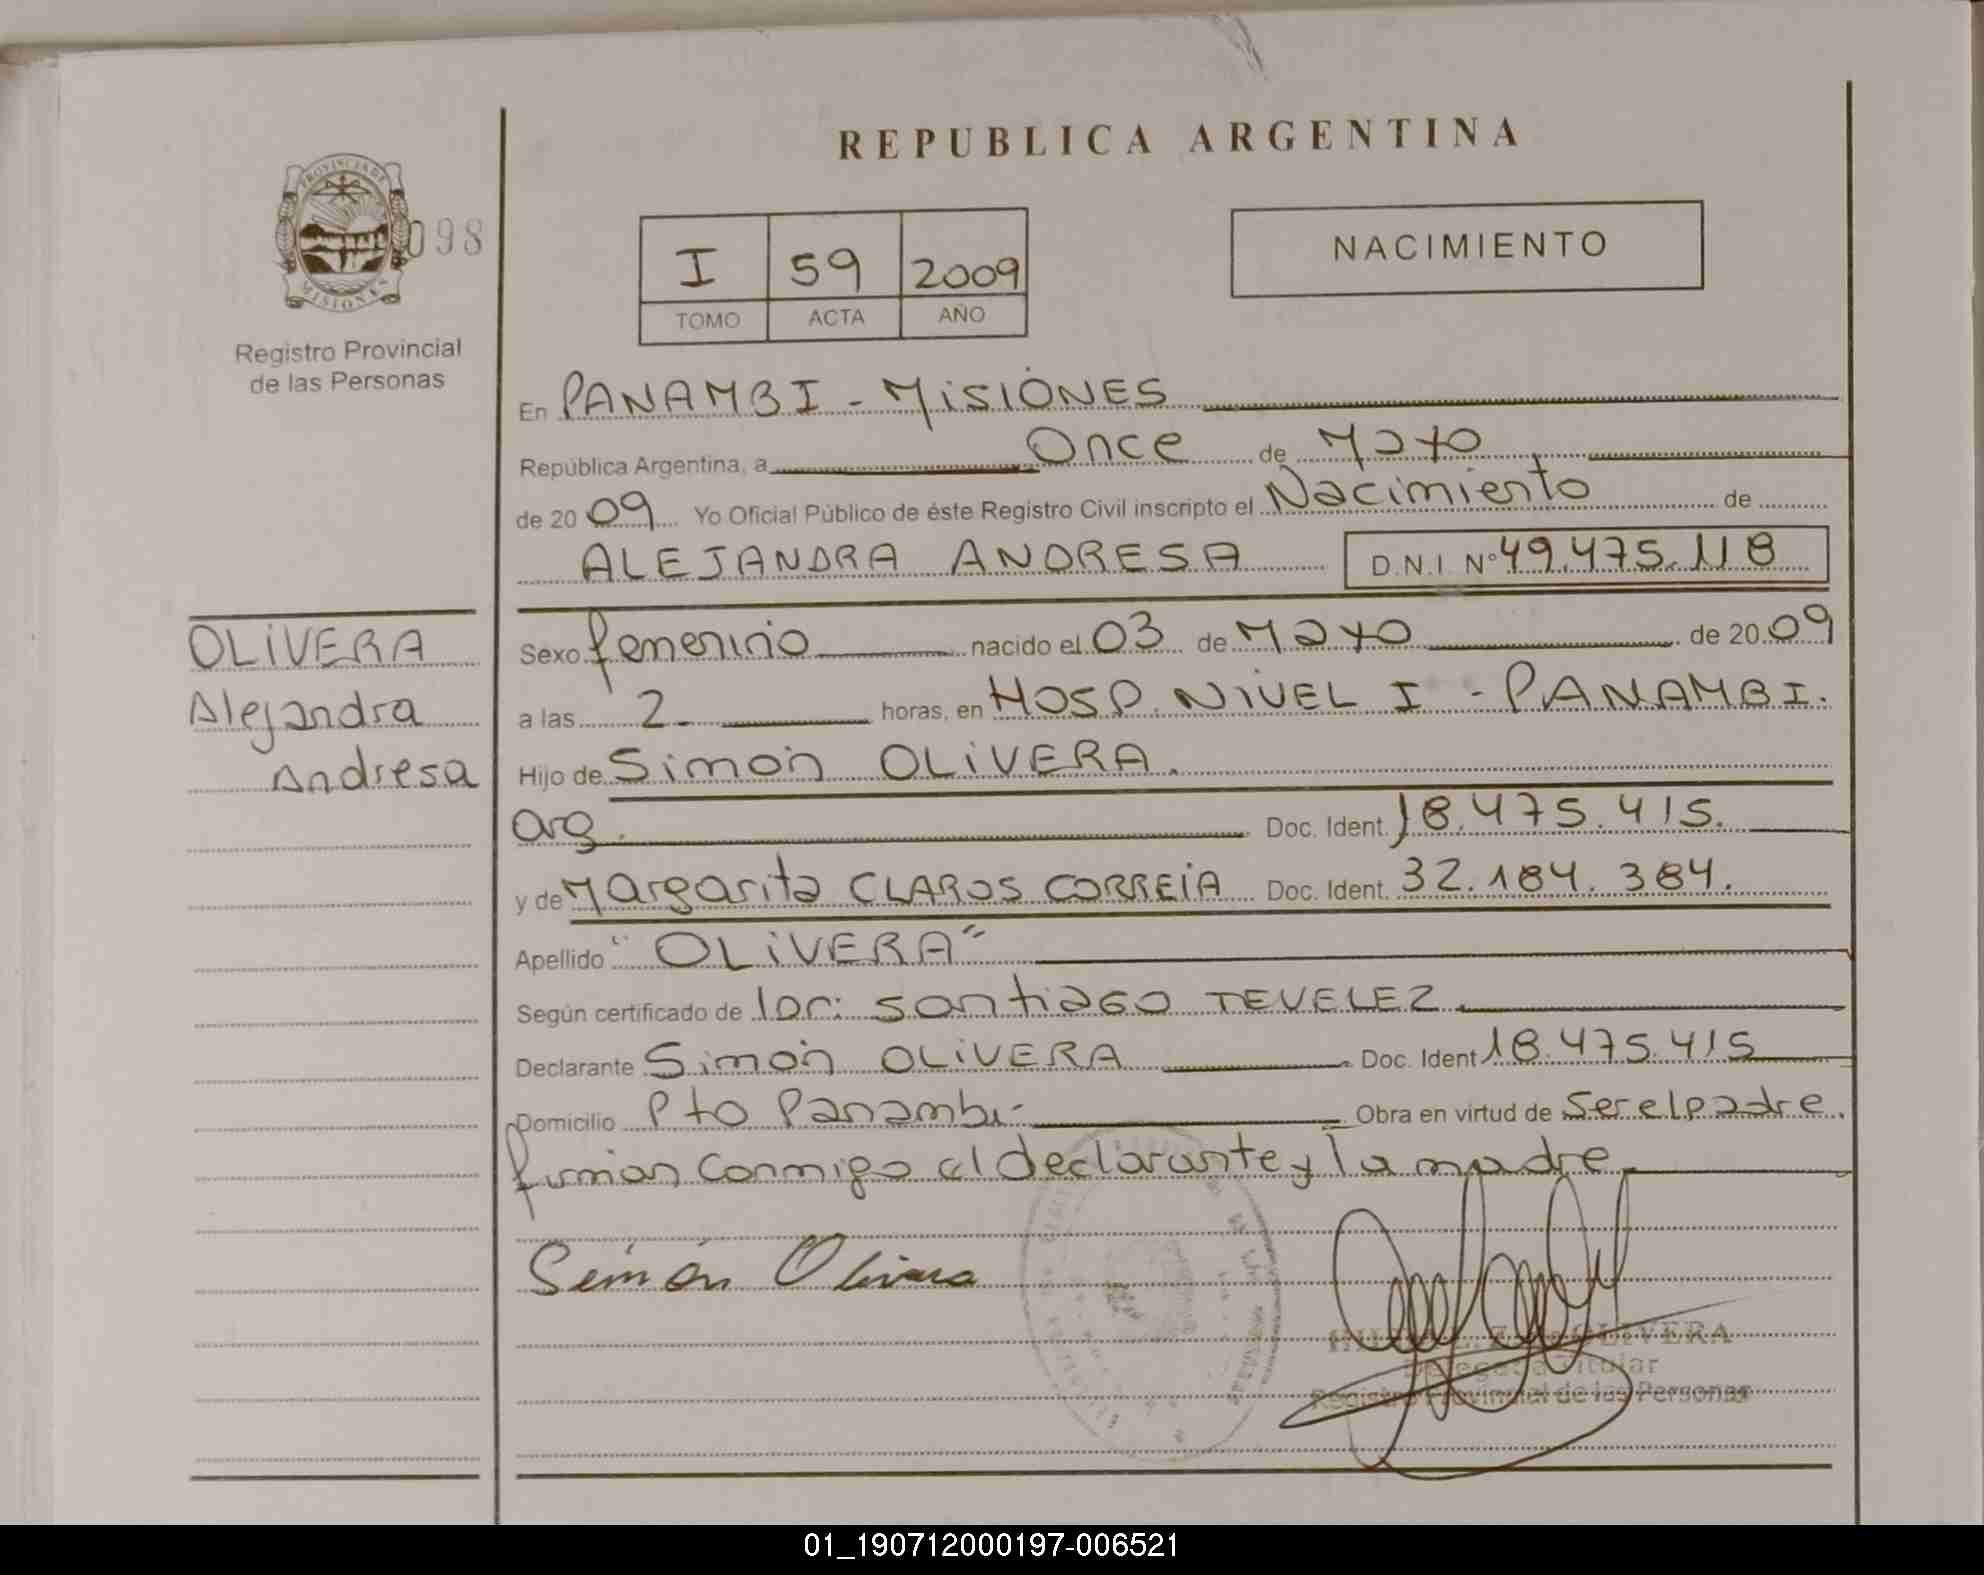 REPUBLICA ARGENTINA
PROVINCIA DE
MISIONES
098
Registro Provincial
de las Personas
I 59 2009
TOMO ACTA AÑO
NACIMIENTO
En PANAMBI - MiSIONES
República Argentina, a Once de Mayo
de 2009 Yo Oficial Público de éste Registro Civil inscripto el Nacimiento de
ALEJANDRA ANDRESA D.N.I. Nº 49.475.118
OLiVERA
Alejandra
Andresa
Sexo femenino nacido el 03 de Mayo de 2009
a las 2 horas, en HOSP. NIVEL I - PANAMBI.
Hijo de Simón OLiVERA.
arg. Doc. Ident. 18.475.415.
y de Margarita CLAROS CORREiA Doc. Ident. 32.184.384.
Apellido "OLiVERA"
Según certificado de Santiago TEVELEZ.
Declarante Simón OLiVERA Doc. Ident 18.475.415
Domicilio Pto Panambí Obra en virtud de Ser el padre.
firman conmigo el declarante y la madre
Simón Olivera
OLIVERA
Delegada Titular
Registro Provincial de las Personas
01_190712000197-006521